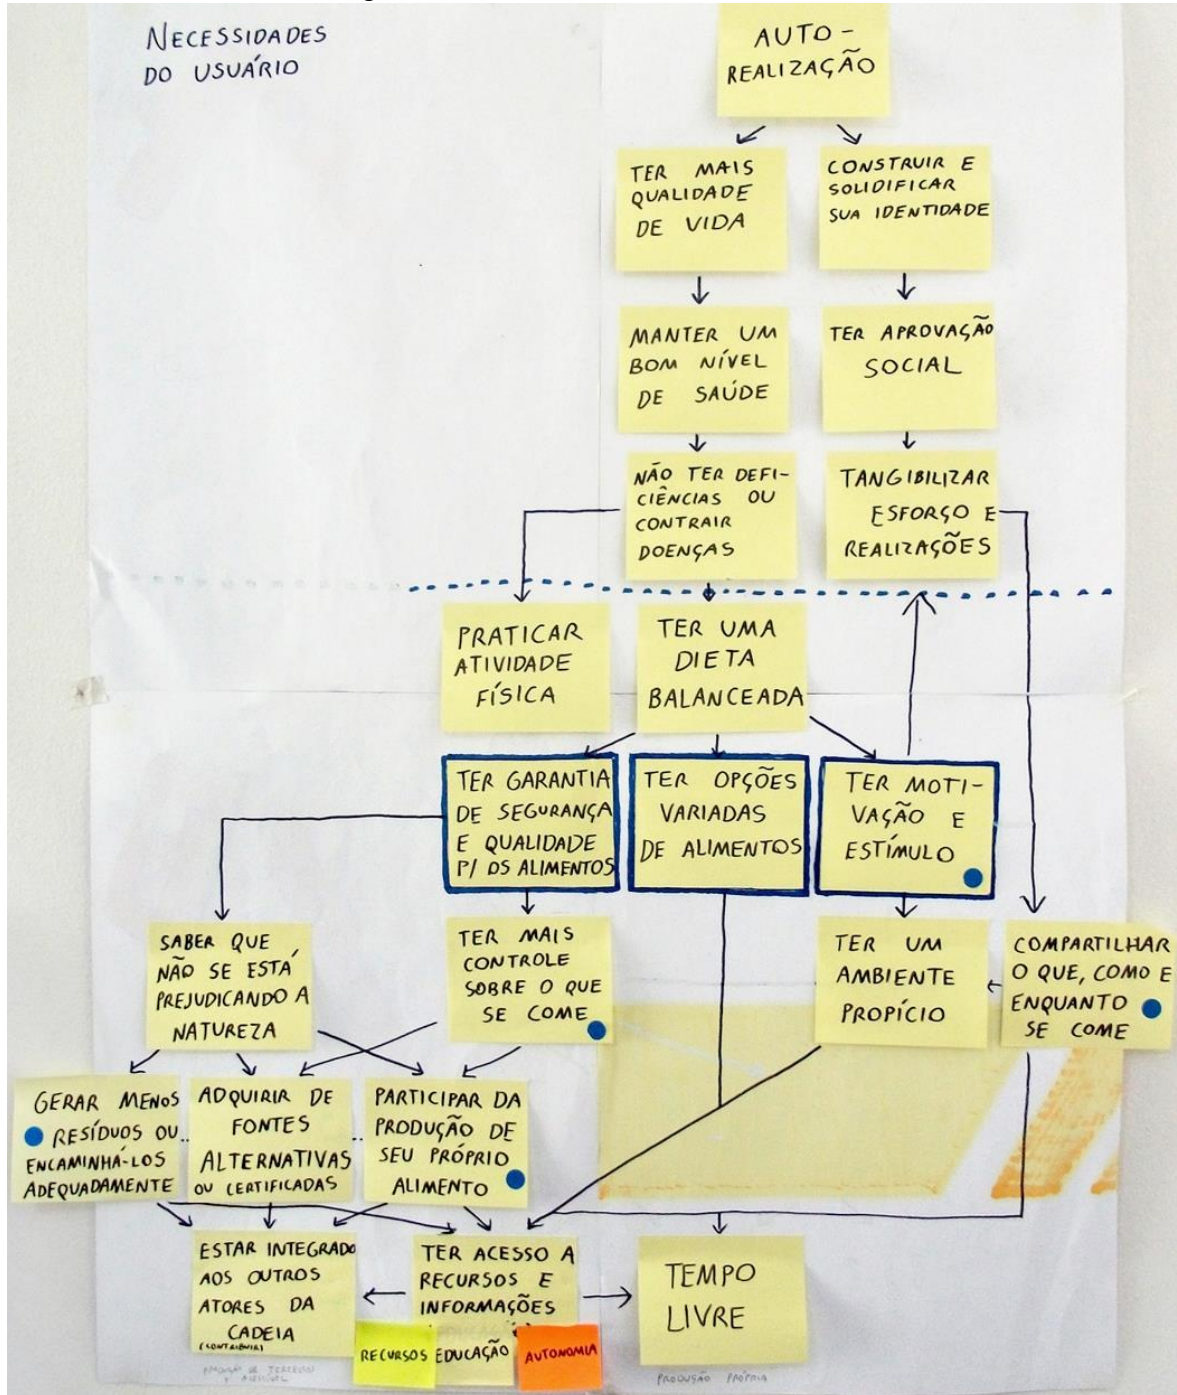 NECESSIDADES
DO USUÁRIO
AUTO-
REALIZAÇÃO
TER MAIS
QUALIDADE
DE VIDA
CONSTRUIR E
SOLIDIFICAR
SUA IDENTIDADE
MANTER UM
BOM NÍVEL
DE SAÚDE
TER APROVAÇÃO
SOCIAL
NÃO TER DEFI-
CIÊNCIAS OU
CONTRAIR
DOENÇAS
TANGIBILIZAR
ESFORÇO E
REALIZAÇÕES
PRATICAR
ATIVIDADE
FÍSICA
TER UMA
DIETA
BALANCEADA
TER GARANTIA
DE SEGURANÇA
E QUALIDADE
P/ OS ALIMENTOS
TER OPÇÕES
VARIADAS
DE ALIMENTOS
TER MOTI-
VAÇÃO E
ESTÍMULO
SABER QUE
NÃO SE ESTÁ
PREJUDICANDO A
NATUREZA
TER MAIS
CONTROLE
SOBRE O QUE
SE COME
TER UM
AMBIENTE
PROPÍCIO
COMPARTILHAR
O QUE, COMO E
ENQUANTO
SE COME
GERAR MENOS
RESÍDUOS OU
ENCAMINHÁ-LOS
ADEQUADAMENTE
ADQUIRIR DE
FONTES
ALTERNATIVAS
OU CERTIFICADAS
PARTICIPAR DA
PRODUÇÃO DE
SEU PRÓPRIO
ALIMENTO
ESTAR INTEGRADO
AOS OUTROS
ATORES DA
CADEIA
(CONTRIBUIR)
TER ACESSO A
RECURSOS E
INFORMAÇÕES
RECURSOS
EDUCAÇÃO
AUTONOMIA
TEMPO
LIVRE
PRODUÇÃO PRÓPRIA